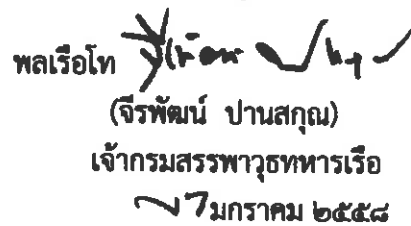 พลเรือโท
(จีรพัฒน์ ปานสกุณ)
เจ้ากรมสรรพาวุธทหารเรือ
มกราคม ๒๕๕๘